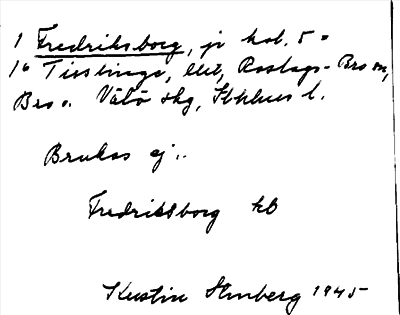 1 Fredriksborg, jr kol. 5 o
16 Tistinge, Roslags-Bro sn,
Bro o. Vätö skg, Sthlms l.
Brukas ej..
Fredriksborg kb
Kerstin Stenberg 1945